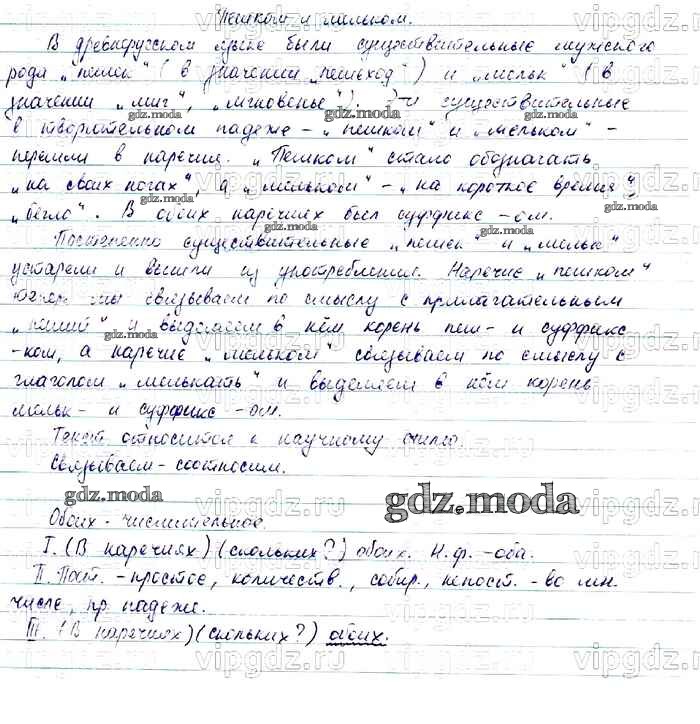 Пешком и мельком.
В древнерусском языке были существительные мужского
рода „пешек" (в значении „пешеход") и „мельк" (в
значении „миг", „мгновенье"). Эти существительные
в творительном падеже - „пешком" и „мельком" -
перешли в наречия. „Пешком" стало обозначать
„на своих ногах", а „мельком" - „на короткое время",
„бегло". В обоих наречиях был суффикс -ом.
Постепенно существительные „пешек" и „мельк"
устарели и вышли из употребления. Наречие „пешком"
теперь мы связываем по смыслу с прилагательным
„пеший" и выделяем в нём корень пеш- и суффикс
-ком, а наречие „мельком" связываем по смыслу с
глаголом „мелькать" и выделяем в нём корень
мельк- и суффикс -ом.
Текст относится к научному стилю.
Связываем - соотносим.
Обоих - числительное.
I. (В наречиях) (скольких?) обоих. Н.ф. - оба.
II. Пост. - простое, количеств., собир., непост. - во мн.
числе, пр. падеже.
III. (В наречиях) (скольких?) обоих.
gdz.moda
vipgdz.ru